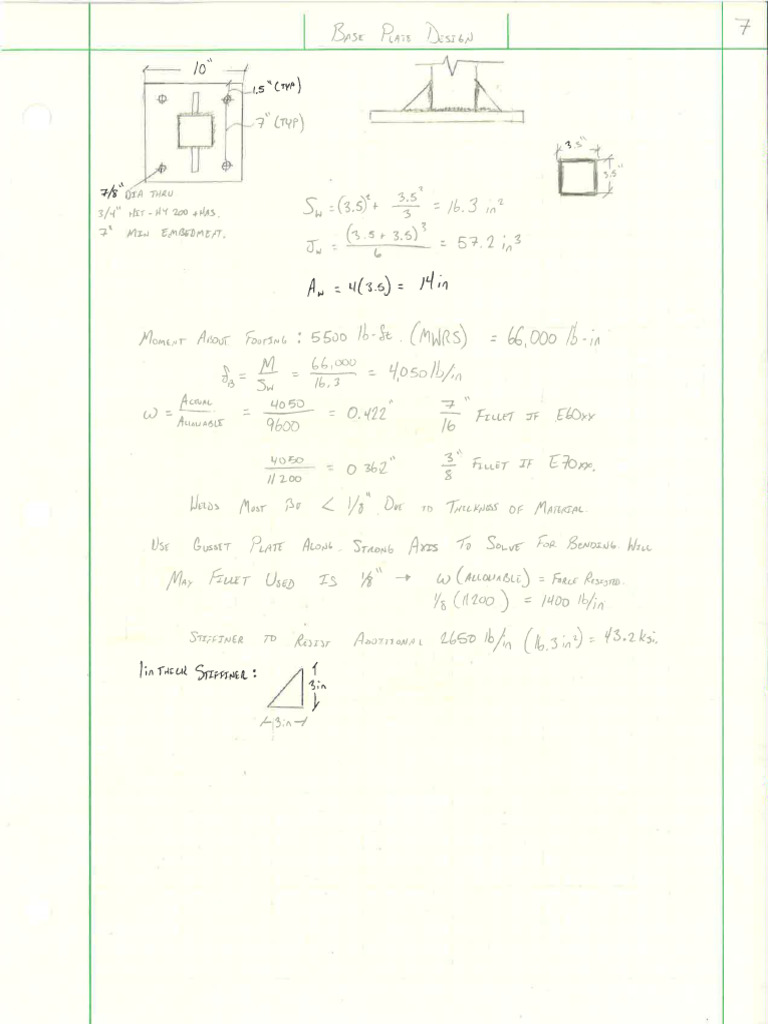 BASE PLATE DESIGN
7
10"
1.5" (TYP)
7" (TYP)
3.5"
3.5"
7/8" DIA THRU
3/4" HIT-HY 200 + HAS.
7" MIN EMBEDMENT.
Sw = (3.5)² + 3.5²/3 = 16.3 in²
Jw = (3.5 + 3.5)³/6 = 57.2 in³
Aw = 4(3.5) = 14in
MOMENT ABOUT FOOTING: 5500 lb-ft. (MWRS) = 66,000 lb-in
fB = M/Sw = 66,000/16.3 = 4,050 lb/in
ω = ACTUAL/ALLOWABLE = 4050/9600 = 0.422" 7/16" FILLET IF E60XX
4050/11200 = 0.362" 3/8" FILLET IF E70XX.
WELDS MUST BE < 1/8" DUE TO THICKNESS OF MATERIAL.
USE GUSSET PLATE ALONG STRONG AXIS TO SOLVE FOR BENDING. WILL
MAX FILLET USED IS 1/8" → ω (ALLOWABLE) = FORCE RESISTED.
1/8 (11200) = 1400 lb/in
STIFFINER TO RESIST ADDITIONAL 2650 lb/in (16.3 in²) = 43.2 ksi.
1in THICK STIFFINER:
3in
3in